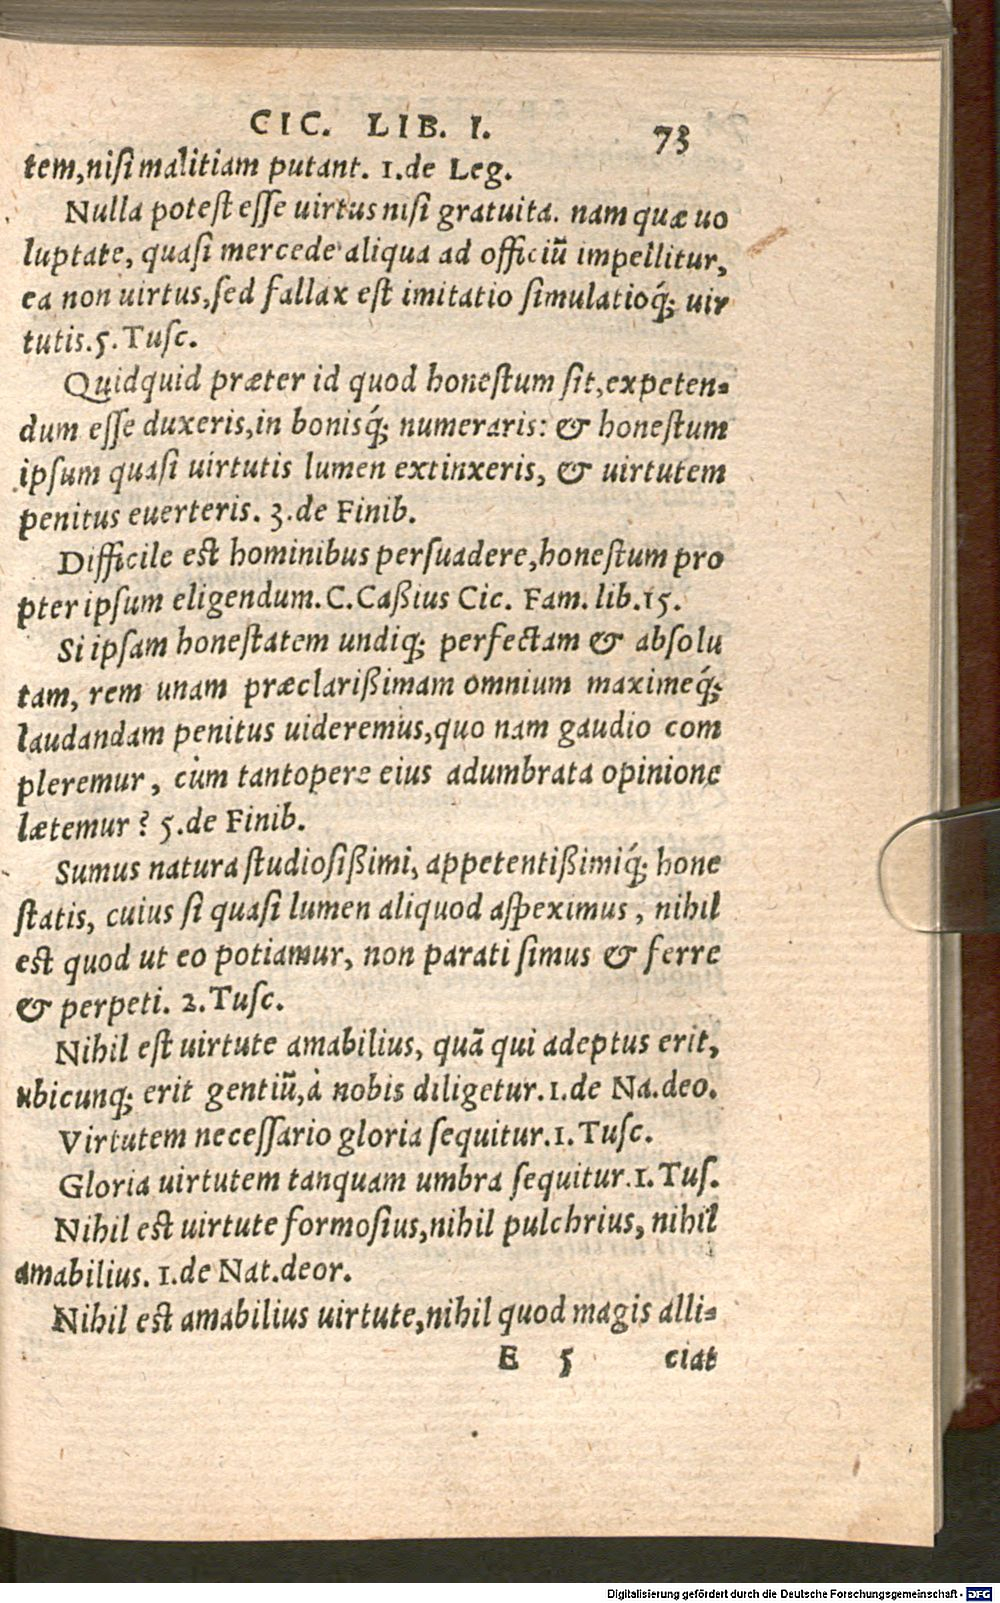 CIC. LIB. I. 73
tem,niſi malitiam putant. 1.de Leg.
Nulla poteſt eſſe uirtus niſi gratuita. nam quæ uo
luptate, quaſi mercede aliqua ad officiũ impellitur,
ea non uirtus,ſed fallax eſt imitatio ſimulatioq́; uir
tutis.5.Tuſc.
Quidquid præter id quod honeſtum ſit,expeten-
dum eſſe duxeris,in bonisq́; numeraris: & honeſtum
ipſum quaſi uirtutis lumen extinxeris, & uirtutem
penitus euerteris. 3.de Finib.
Difficile eſt hominibus perſuadere,honeſtum pro
pter ipſum eligendum.C.Caßius Cic. Fam.lib.15.
Si ipſam honeſtatem undiq; perfectam & abſolu
tam, rem unam præclarißimam omnium maximeq́;
laudandam penitus uideremus,quo nam gaudio com
pleremur, cùm tantopere eius adumbrata opinione
lætemur? 5.de Finib.
Sumus natura ſtudioſißimi, appetentißimiq́; hone
ſtatis, cuius ſi quaſi lumen aliquod aſpeximus, nihil
eſt quod ut eo potiamur, non parati ſimus & ferre
& perpeti. 2.Tuſc.
Nihil eſt uirtute amabilius, quã qui adeptus erit,
ubicunq; erit gentiũ,à nobis diligetur.1.de Na.deo.
Virtutem neceſſario gloria ſequitur.1.Tuſc.
Gloria uirtutem tanquam umbra ſequitur.1.Tuſ.
Nihil eſt uirtute formoſius,nihil pulchrius, nihil
amabilius. 1.de Nat.deor.
Nihil eſt amabilius uirtute,nihil quod magis alli-
E 5 ciat
Digitalisierung gefördert durch die Deutsche Forschungsgemeinschaft - DFG